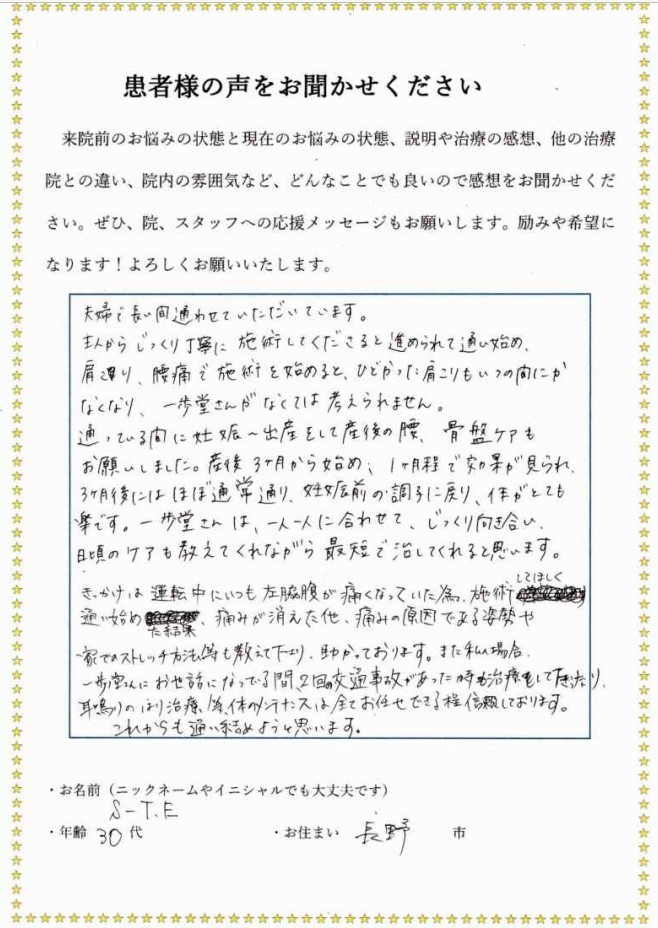 患者様の声をお聞かせください
来院前のお悩みの状態と現在のお悩みの状態、説明や治療の感想、他の治療
院との違い、院内の雰囲気など、どんなことでも良いので感想をお聞かせくだ
さい。ぜひ、院、スタッフへの応援メッセージもお願いします。励みや希望に
なります！よろしくお願いいたします。
夫婦で長い間通わせていただいています。
主人からじっくり丁寧に施術してくださると進められて通い始め、
肩凝り、腰痛で施術を始めると、ひどかった肩こりもいつの間にか
なくなり、一歩堂さんがなくては考えられません。
通っている間に妊娠〜出産をして産後の腰、骨盤ケアも
お願いしました。産後3ヶ月から始め、1ヶ月程で効果が見られ、
3ヶ月後にはほぼ通常通り、妊娠前の調子に戻り、体がとても
楽です。一歩堂さんは、一人一人に合わせて、じっくり向き合い、
日頃のケアも教えてくれながら最短で治してくれると思います。
きっかけは運転中にいつも左脇腹が痛くなっていた為、施術してほしく
通い始めた結果、痛みが消えた他、痛みの原因である姿勢や
家でのストレッチ方法等も教えて下さり、助かっております。また私の場合、
一歩堂さんにお世話になっている間、2回の交通事故があった時も治療をして下さったり、
耳鳴りのはり治療、体のメンテナンスは全てお任せできる程信頼しております。
これからも通い続めようと思います。
・お名前（ニックネームやイニシャルでも大丈夫です）
S-T.E
・年齢 30 代 ・お住まい 長野 市